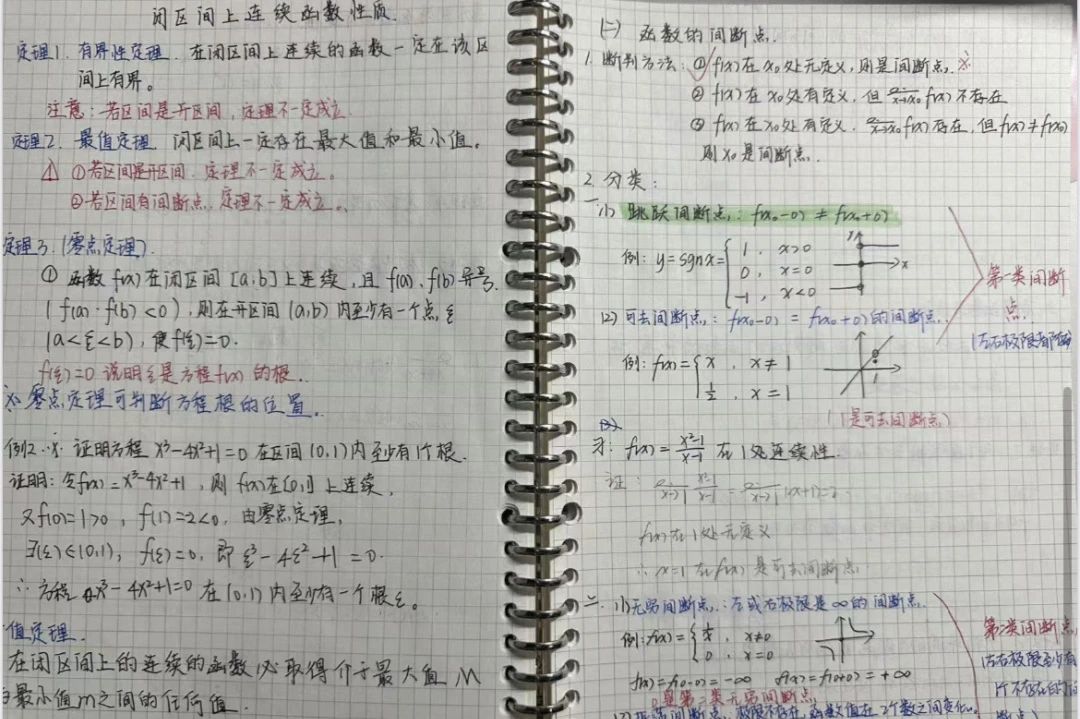 闭区间上连续函数性质.
定理1. 有界性定理. 在闭区间上连续的函数一定在该区
间上有界。
注意:若区间是开区间,定理不一定成立.
定理2. 最值定理 闭区间上一定存在最大值和最小值。
⚠ ①若区间是开区间,定理不一定成立。
②若区间有间断点,定理不一定成立。
定理3.(零点定理).
① 函数f(x)在闭区间[a,b]上连续,且f(a)、f(b)异号.
(f(a)·f(b)<0),则在开区间(a,b)内至少有一个点ξ
(a<ξ<b),使f(ξ)=0.
f(ξ)=0 说明ξ是方程f(x)的根..
※零点定理可判断方程根的位置.
例2.※. 证明方程 x³-4x²+1=0 在区间(0,1)内至少有1个根.
证明:令f(x)=x³-4x²+1,则f(x)在[0,1]上连续,
又f(0)=1>0,f(1)=-2<0,由零点定理,
∃(ξ)∈(0,1),f(ξ)=0,即 ξ³-4ξ²+1=0.
∴方程 x³-4x²+1=0 在(0,1)内至少有一个根ξ。
值定理.
在闭区间上的连续的函数必取得介于最大值M
最小值m之间的任何值.
(二) 函数的间断点.
1. 断判方法:①f(x)在x₀处无定义,则是间断点.※
② f(x)在x₀处有定义,但 lim x→x₀ f(x)不存在
③ f(x)在x₀处有定义. lim x→x₀ f(x)存在,但f(x)≠f(x₀)
则x₀是间断点.
2. 分类:
一 (1) 跳跃间断点:f(x₀-0)≠f(x₀+0)
例:y=sgnx={ 1, x>0
0, x=0
-1, x<0
y
x
第一类间断
点.
(2) 可去间断点:f(x₀-0)=f(x₀+0)的间断点.
(左右极限都存在)
例:f(x)={ x, x≠1
½, x=1
1
(1是可去间断点)
f(x)=x²-1/x-1 在1处连续性.
证: lim x→1 x²-1/x-1 = lim x→1 (x+1)=2
f(x)在1处无定义
∴x=1在f(x)是可去间断点
二. (1)无穷间断点:左或右极限是∞的间断点.
例:f(x)={ 1/x, x≠0
0, x=0
第二类间断点
(左右极限至少有
个不存在的间
断点)
f(x)=f(0-0)=-∞ f(x)=f(0+0)=+∞
是第二类无穷间断点
(2)振荡间断点. 极限不存在,函数值在2个数之间变化.